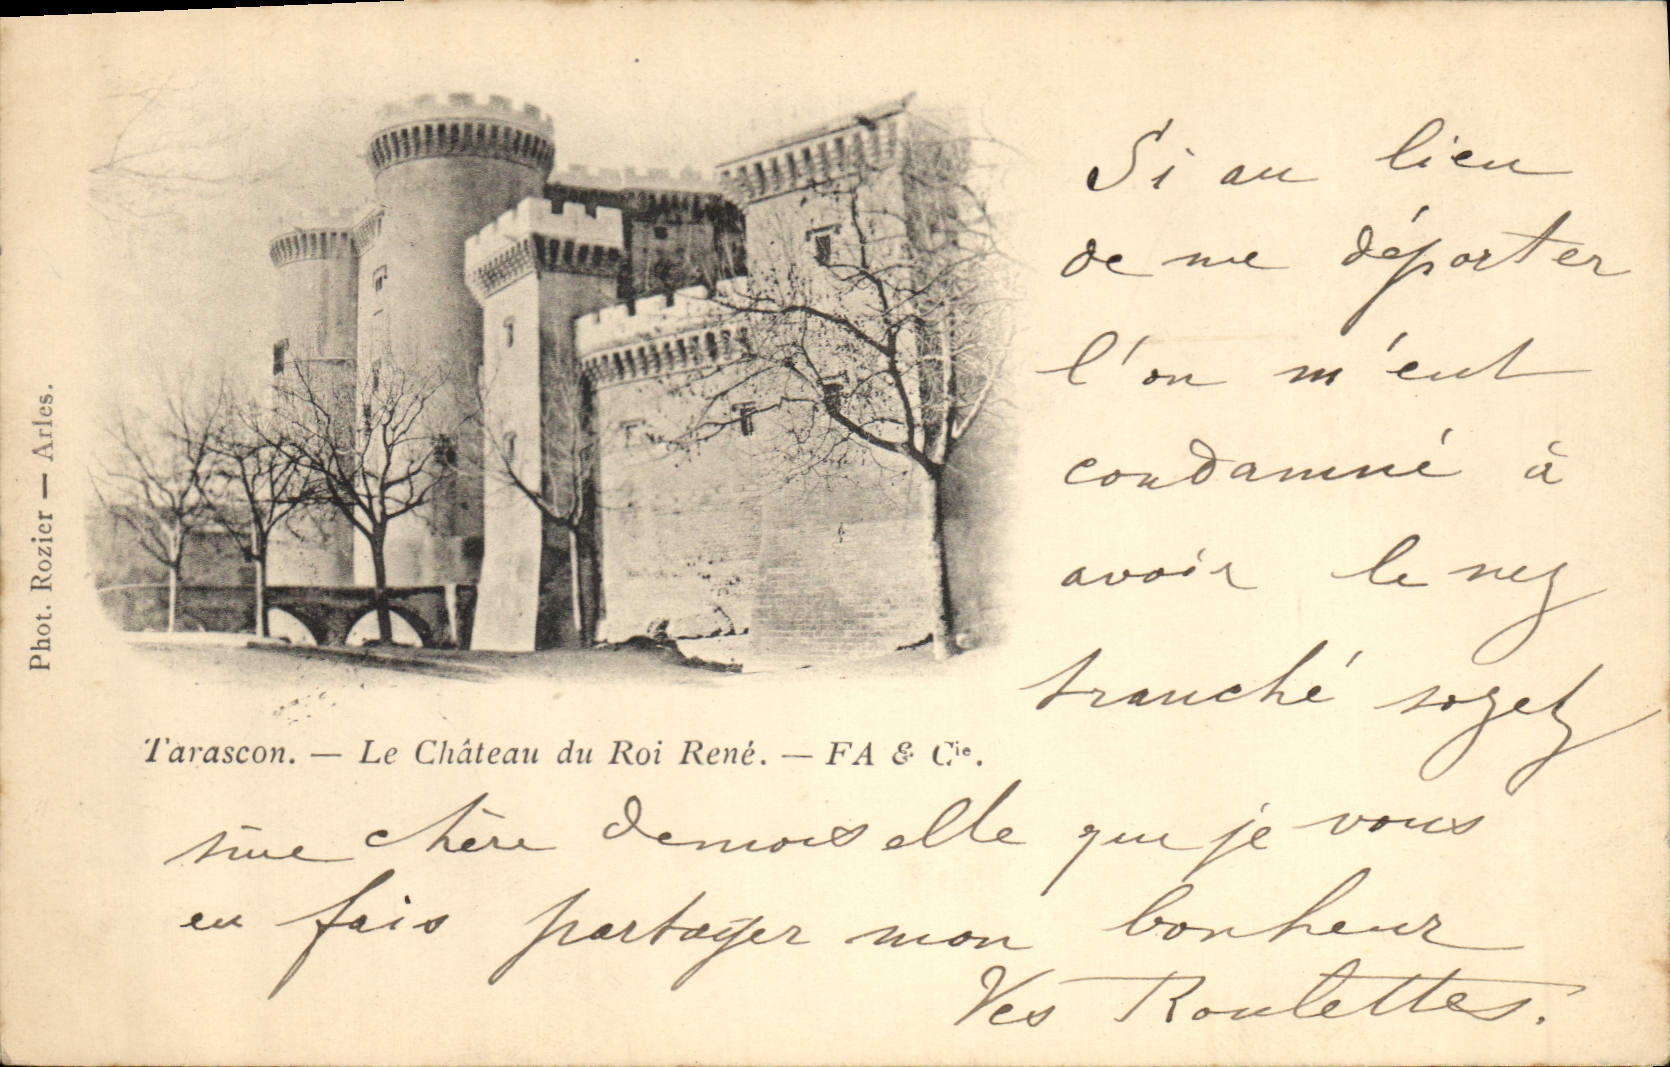 Phot. Rozier — Arles.
Tarascon. — Le Château du Roi René. — FA & Cie.
Si au lieu
de me déporter
l'on m'eut
condamné à
avoir le nez
tranché soyez
sûre chère demoiselle que je vous
en fais partager mon bonheur
Roulettes.